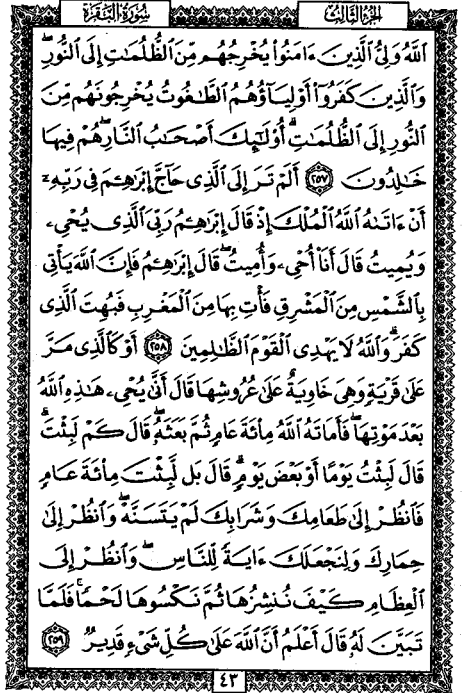 سُورَةُ البَقَرَةِ
الجُزْءُ الثَّالِثُ
ٱللَّهُ وَلِىُّ ٱلَّذِينَ ءَامَنُوا۟ يُخْرِجُهُم مِّنَ ٱلظُّلُمَٰتِ إِلَى ٱلنُّورِ ۖ
وَٱلَّذِينَ كَفَرُوٓا۟ أَوْلِيَآؤُهُمُ ٱلطَّٰغُوتُ يُخْرِجُونَهُم مِّنَ
ٱلنُّورِ إِلَى ٱلظُّلُمَٰتِ ۗ أُو۟لَٰٓئِكَ أَصْحَٰبُ ٱلنَّارِ ۖ هُمْ فِيهَا
خَٰلِدُونَ ٢٥٧ أَلَمْ تَرَ إِلَى ٱلَّذِى حَآجَّ إِبْرَٰهِـۧمَ فِى رَبِّهِۦٓ
أَنْ ءَاتَىٰهُ ٱللَّهُ ٱلْمُلْكَ إِذْ قَالَ إِبْرَٰهِـۧمُ رَبِّىَ ٱلَّذِى يُحْىِۦ
وَيُمِيتُ قَالَ أَنَا۠ أُحْىِۦ وَأُمِيتُ ۖ قَالَ إِبْرَٰهِـۧمُ فَإِنَّ ٱللَّهَ يَأْتِى
بِٱلشَّمْسِ مِنَ ٱلْمَشْرِقِ فَأْتِ بِهَا مِنَ ٱلْمَغْرِبِ فَبُهِتَ ٱلَّذِى
كَفَرَ ۗ وَٱللَّهُ لَا يَهْدِى ٱلْقَوْمَ ٱلظَّٰلِمِينَ ٢٥٨ أَوْ كَٱلَّذِى مَرَّ
عَلَىٰ قَرْيَةٍ وَهِىَ خَاوِيَةٌ عَلَىٰ عُرُوشِهَا قَالَ أَنَّىٰ يُحْىِۦ هَٰذِهِ ٱللَّهُ
بَعْدَ مَوْتِهَا ۖ فَأَمَاتَهُ ٱللَّهُ مِا۟ئَةَ عَامٍ ثُمَّ بَعَثَهُۥ ۖ قَالَ كَمْ لَبِثْتَ ۖ
قَالَ لَبِثْتُ يَوْمًا أَوْ بَعْضَ يَوْمٍ ۖ قَالَ بَل لَّبِثْتَ مِا۟ئَةَ عَامٍ
فَٱنظُرْ إِلَىٰ طَعَامِكَ وَشَرَابِكَ لَمْ يَتَسَنَّهْ ۖ وَٱنظُرْ إِلَىٰ
حِمَارِكَ وَلِنَجْعَلَكَ ءَايَةً لِّلنَّاسِ ۖ وَٱنظُرْ إِلَى
ٱلْعِظَامِ كَيْفَ نُنشِزُهَا ثُمَّ نَكْسُوهَا لَحْمًا ۚ فَلَمَّا
تَبَيَّنَ لَهُۥ قَالَ أَعْلَمُ أَنَّ ٱللَّهَ عَلَىٰ كُلِّ شَىْءٍ قَدِيرٌ ٢٥٩
٤٣